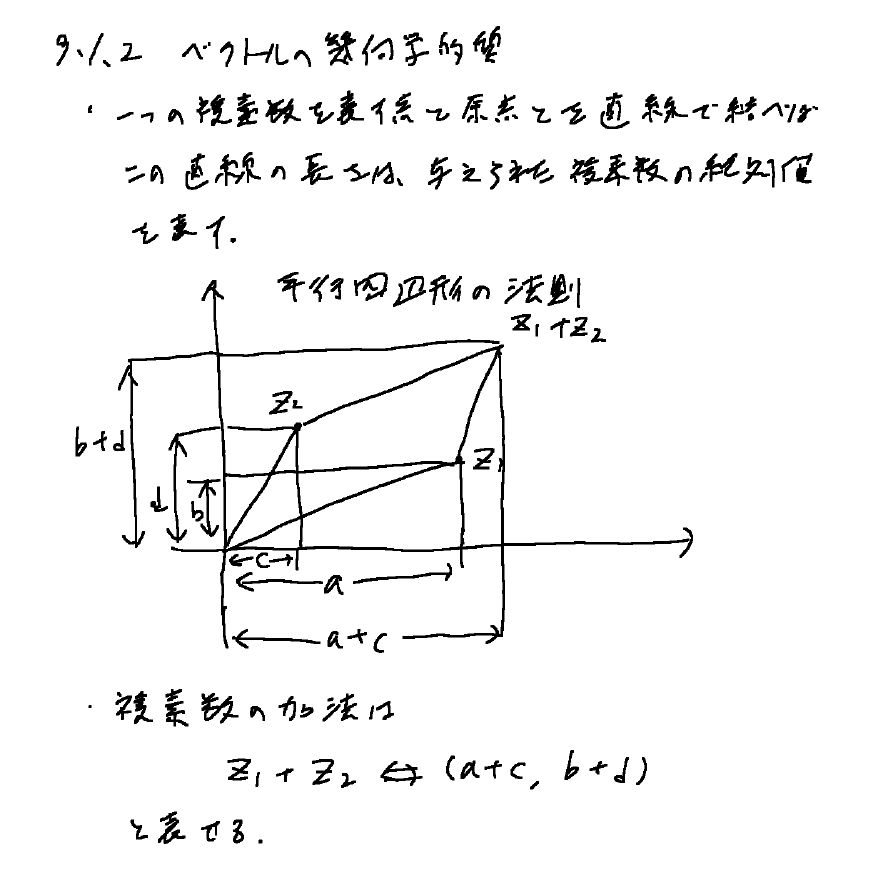 9.1.2 ベクトルの幾何学的質
・一つの複素数を表す点と原点とを直線で結べば
この直線の長さは、与えられた複素数の絶対値
を表す.
平行四辺形の法則
Z₁+Z₂
Z₂
b+d
Z₁
d
b
c
a
a+c
・複素数の加法は
Z₁+Z₂ ⇔ (a+c, b+d)
と表せる.